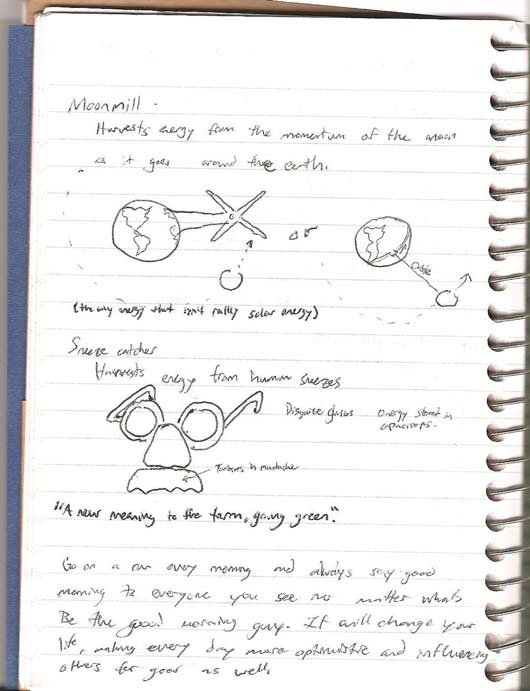 Moonmill.
Harvests energy from the momentum of the moon
as it goes around the earth.
or
Cable
(the only energy that isn't really solar energy)
Sneeze catcher
Harvests energy from human sneezes
Disguise glasses
energy stored in
capacitors.
Turbines in mustache
"A new meaning to the term, going green".
Go on a run every morning and always say good
morning to everyone you see no matter what.
Be the good morning guy. It will change your
life, making every day more optimistic and influencing
others for good as well.